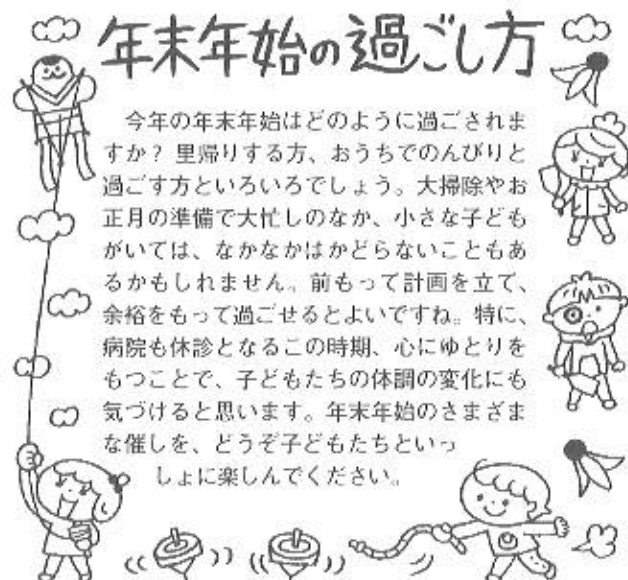 年末年始の過ごし方
今年の年末年始はどのように過ごされま
すか？ 里帰りする方、おうちでのんびりと
過ごす方といろいろでしょう。大掃除やお
正月の準備で大忙しのなか、小さな子ども
がいては、なかなかはかどらないこともあ
るかもしれません。前もって計画を立て、
余裕をもって過ごせるとよいですね。特に、
病院も休診となるこの時期、心にゆとりを
もつことで、子どもたちの体調の変化にも
気づけると思います。年末年始のさまざま
な催しを、どうぞ子どもたちといっ
しょに楽しんでください。